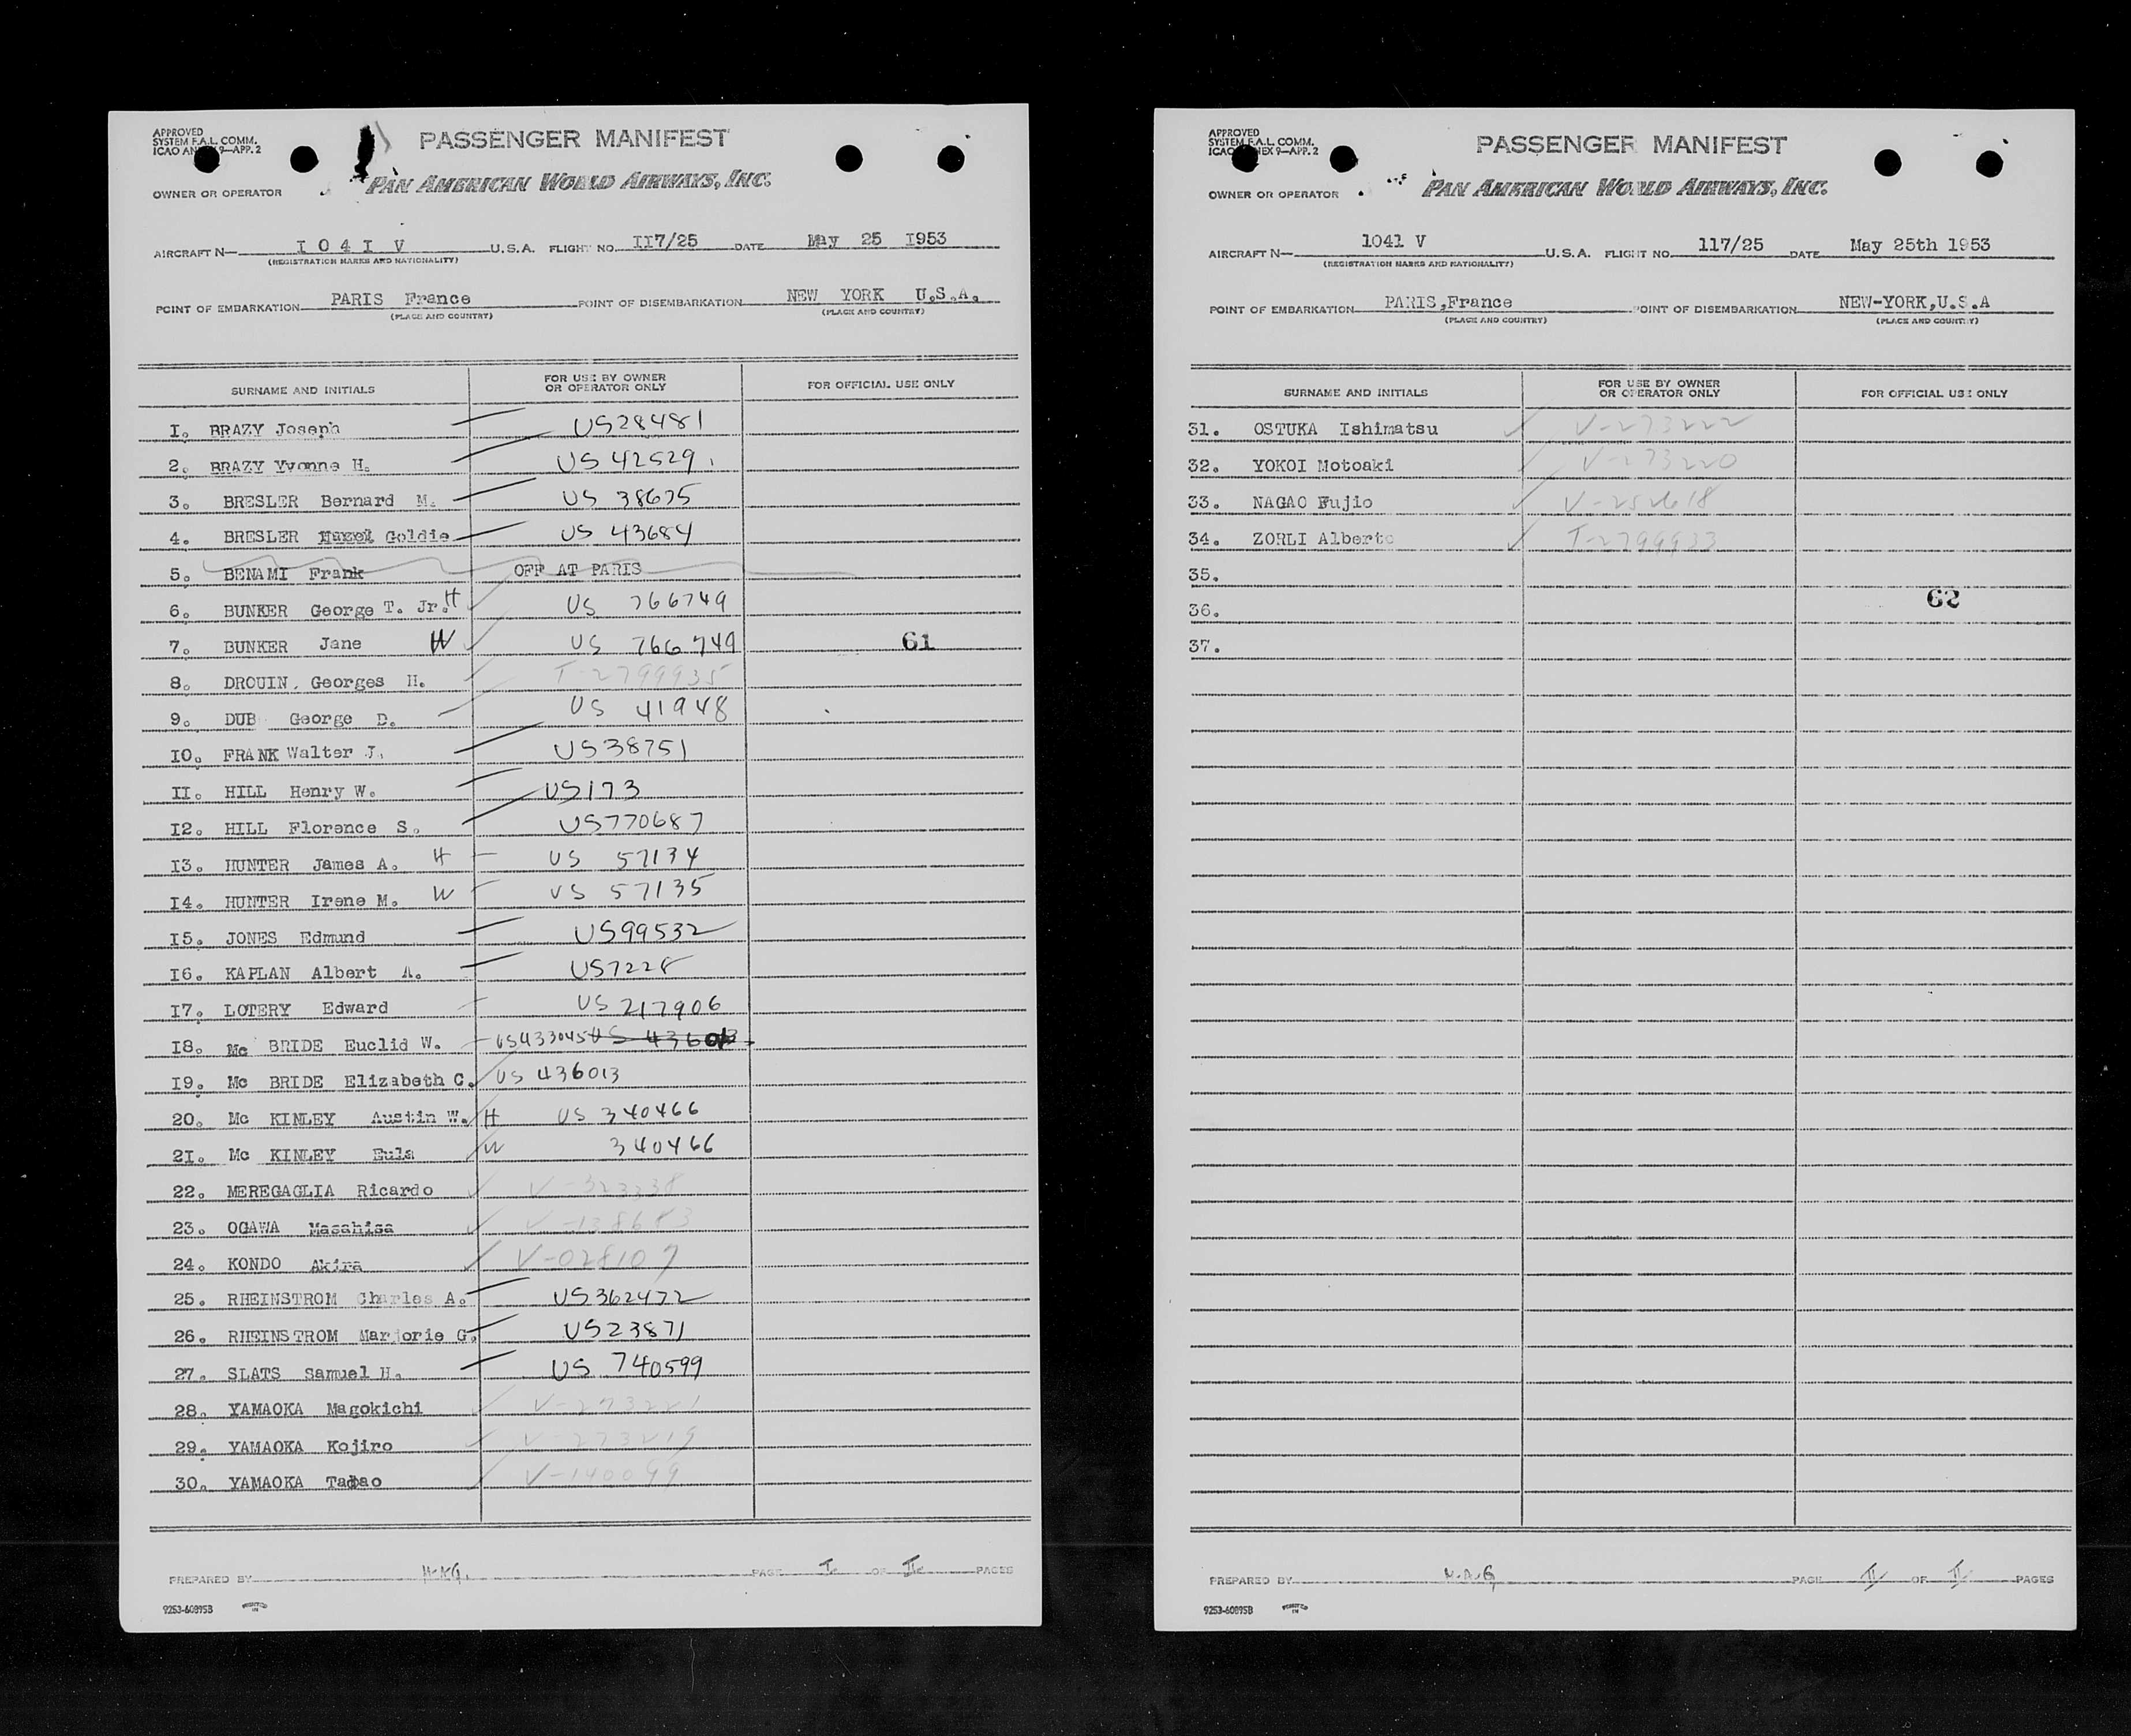 APPROVED
SYSTEM F.A.L. COMM.
ICAO ANNEX 9—APP. 2
PASSENGER MANIFEST
OWNER OR OPERATOR PAN AMERICAN WORLD AIRWAYS, INC.
AIRCRAFT N— I O 4 I V U.S.A. FLIGHT NO. II7/25 DATE May 25 I953
(REGISTRATION MARKS AND NATIONALITY)
POINT OF EMBARKATION PARIS France POINT OF DISEMBARKATION NEW YORK U.S.A.
(PLACE AND COUNTRY) (PLACE AND COUNTRY)
SURNAME AND INITIALS FOR USE BY OWNER OR OPERATOR ONLY FOR OFFICIAL USE ONLY
I. BRAZY Joseph US28481
2. BRAZY Yvonne H. US 42529
3. BRESLER Bernard M. US 38675
4. BRESLER Goldie US 43684
5. BENAMI Frank OFF AT PARIS
6. BUNKER George T. Jr. H US 766749
7. BUNKER Jane W US 766749 61
8. DROUIN, Georges H. T-2799935
9. DUB George D. US 41948
IO. FRANK Walter J. US38751
II. HILL Henry W. US173
I2. HILL Florence S. US770687
I3. HUNTER James A. H US 57134
I4. HUNTER Irene M. W US 57135
I5. JONES Edmund US99532
I6. KAPLAN Albert A. US7228
I7. LOTERY Edward US 217906
I8. Mc BRIDE Euclid W. US433045 US 436013
I9. Mc BRIDE Elizabeth C. US 436013
20. Mc KINLEY Austin W. H US 340466
2I. Mc KINLEY Eula W 340466
22. MEREGAGLIA Ricardo V-323338
23. OGAWA Masahisa V-138683
24. KONDO Akira V-028107
25. RHEINSTROM Charles A. US362472
26. RHEINSTROM Marjorie G. US23871
27. SLATS Samuel H. US 740599
28. YAMAOKA Magokichi V-273221
29. YAMAOKA Kojiro V-273219
30. YAMAOKA Tadao V-140099
PREPARED BY PAGE I OF II PAGES
9253-60895B PRINTED IN
APPROVED
SYSTEM F.A.L. COMM.
ICAO ANNEX 9—APP. 2
PASSENGER MANIFEST
OWNER OR OPERATOR PAN AMERICAN WORLD AIRWAYS, INC.
AIRCRAFT N— 1041 V U.S.A. FLIGHT NO. 117/25 DATE May 25th 1953
(REGISTRATION MARKS AND NATIONALITY)
POINT OF EMBARKATION PARIS,France POINT OF DISEMBARKATION NEW-YORK,U.S.A
(PLACE AND COUNTRY) (PLACE AND COUNTRY)
SURNAME AND INITIALS FOR USE BY OWNER OR OPERATOR ONLY FOR OFFICIAL USE ONLY
31. OSTUKA Ishimatsu V-273222
32. YOKOI Motoaki V-273220
33. NAGAO Fujio V-252618
34. ZORLI Alberto T-2799933
35.
36. 62
37.
PREPARED BY H.A.G. PAGE II OF II PAGES
9253-60895B PRINTED IN